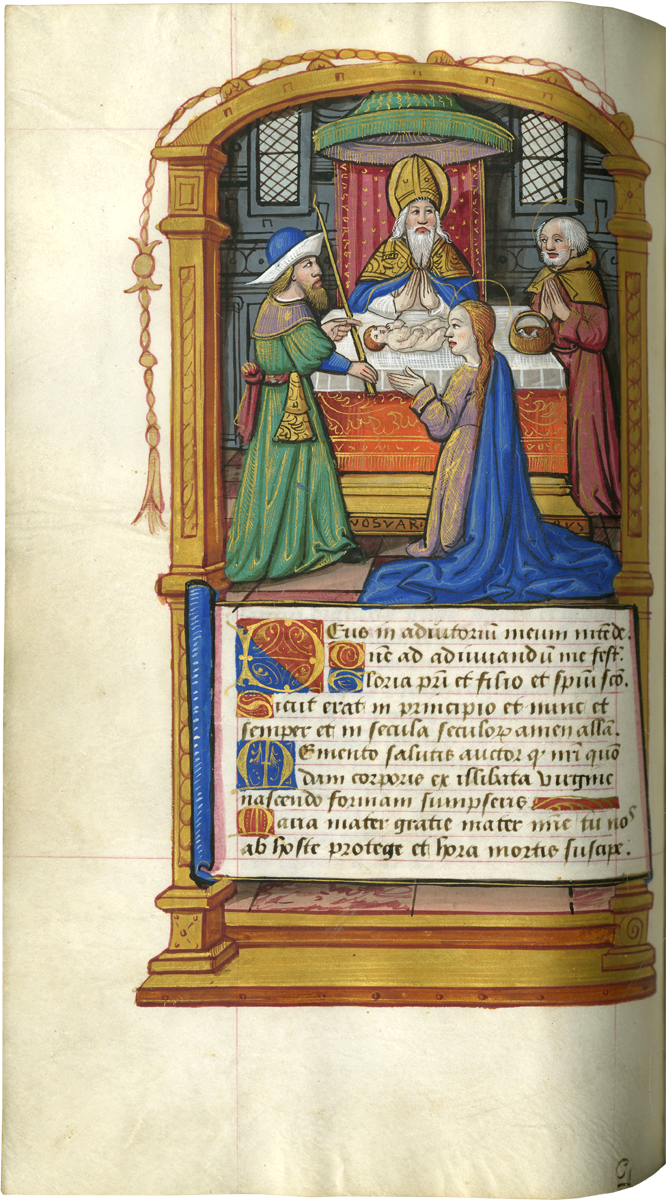 VOSVAR
VS
Deus in adiutoriū meum intēde.
Dn̄e ad adiuuandū me fest.
Gloria pr̄i et filio et spiūi scō.
Sicut erat in principio et nunc et
semper et in secula seculoꝝ amen all̄a.
Memento salutis auctor qͥ nr̄i quō
dam corporis ex illibata virgine
nascendo formam sumpseris
Maria mater gratie mater mīe tu nos
ab hoste protege et hora mortis suscipe.